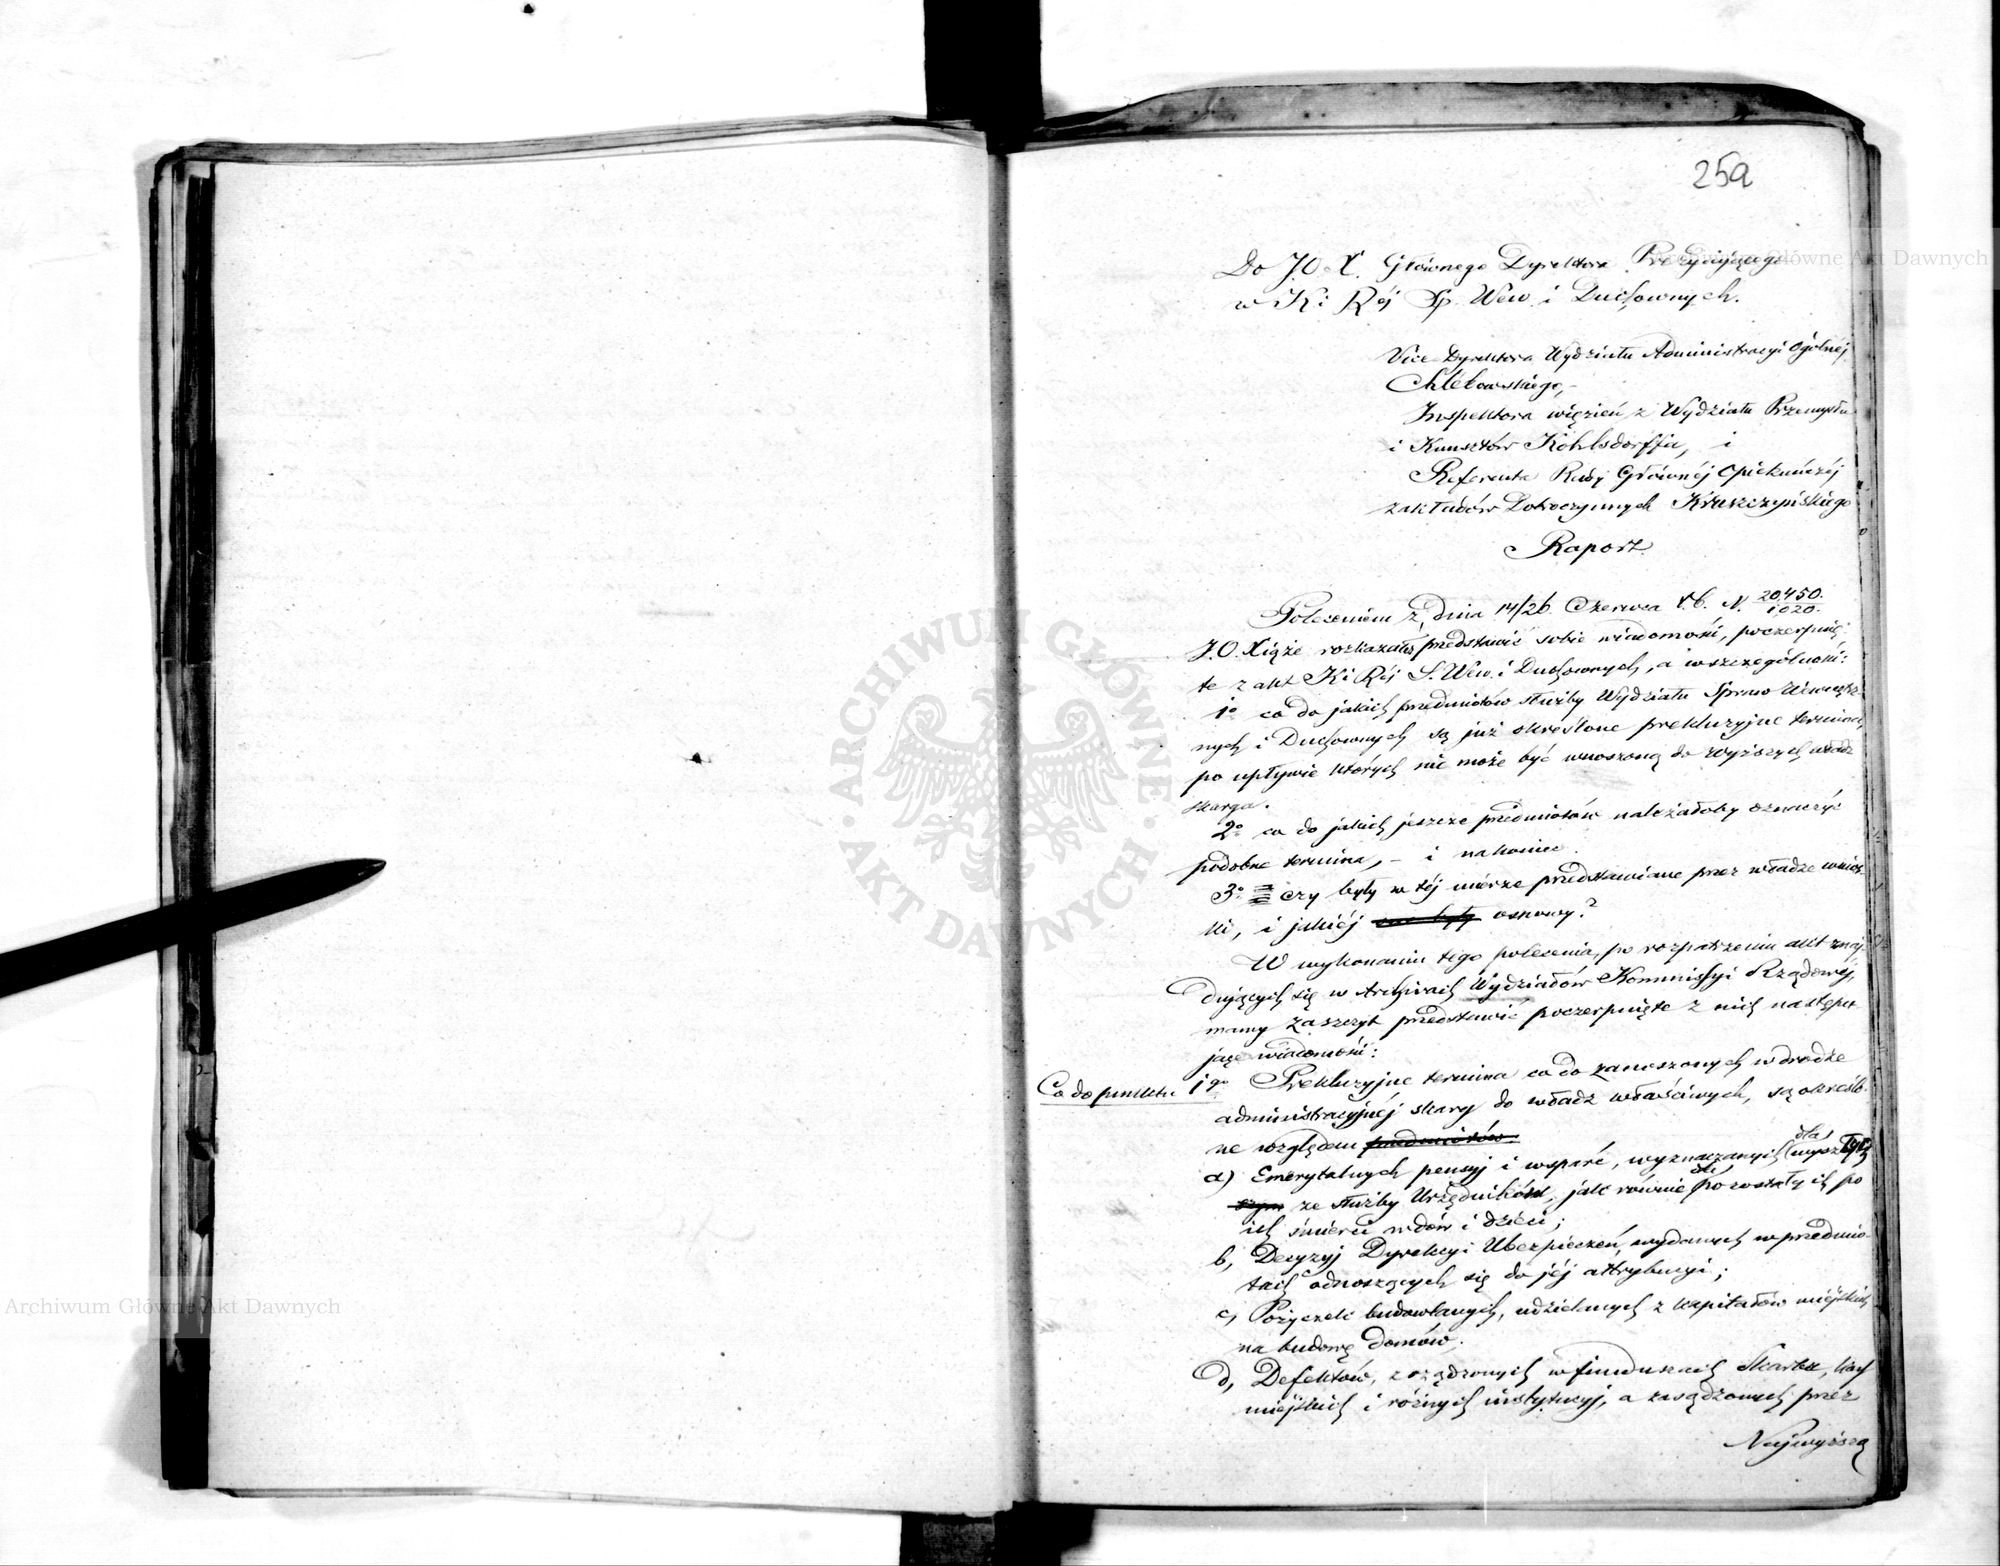 259
Do J.O.X. Głównego Dyrektora Prezydującego
w Ki Rój Sp. Wew. i Duchownych.
Vice Dyrektora Wydziału Administracyi Ogólnéj
Chlebowskiego,-
Inspektora więzień z Wydziału Przemysłu
i Kunsztów Kohlsdorffa, i
Referenta Rady Głównéj Opiekuńczéj
zakładów Dobroczynnych Kruszczyńskiego
Raport
Poleceniem z dnia 14/26. Czerwca r.b. N. 20450./1020.
J.O. Xiąże rozkazałeś przedstawić sobie wiadomości, poczerpnię-
te z akt Ki Rój S. Wew. i Duchownych, a wszczególności:
1o co do jakich przedmiotów służby Wydziału Spraw Wewnętrz-
nych i Duchownych są już określone prekluzyjne termina,
po upływie których nie może być wnoszoną do wyższych władz
skarga.
2o co do jakich jeszcze przedmiotów należałoby oznaczyć
podobne termina, - i nakoniec.
3o czy były w téj mierze przedstawiane przez władze wnios-
ki, i jakiéj one były osnowy?
W wykonaniu tego polecenia, po rozpatrzeniu akt znaj-
dujących się w Archivach Wydziałów Kommissyi Rządowéj,
mamy zaszczyt przedstawić poczerpnięte z nich następu-
jące wiadomości:
Co do punktu 1go Prekluzyjne termina co do zanoszonych w drodze
administracyjnéj skarg do władz właściwych, są określo-
ne względem przedmiotów:
a) Emerytalnych pensyj i wsparć, wyznaczanych dla wyszłych
ze służby Urzędników, jak równie dla pozostałych po
ich śmierci wdów i dzieci;
b, Decyzyj Dyrekcyi Ubezpieczeń, wydanych w przedmio-
tach odnoszących się do jéj attrybucyi;
c, Pożyczek budowlanych, udzielanych z kapitałów miejskich
na budowę domów.
d, Defektów, zrządzonych w funduszach Skarbu, kass
miejskich i różnych instytucyj, a zasądzonych przez
Najwyższą
ARCHIWUM GŁÓWNE · AKT DAWNYCH ·
Archiwum Główne Akt Dawnych
Archiwum Główne Akt Dawnych